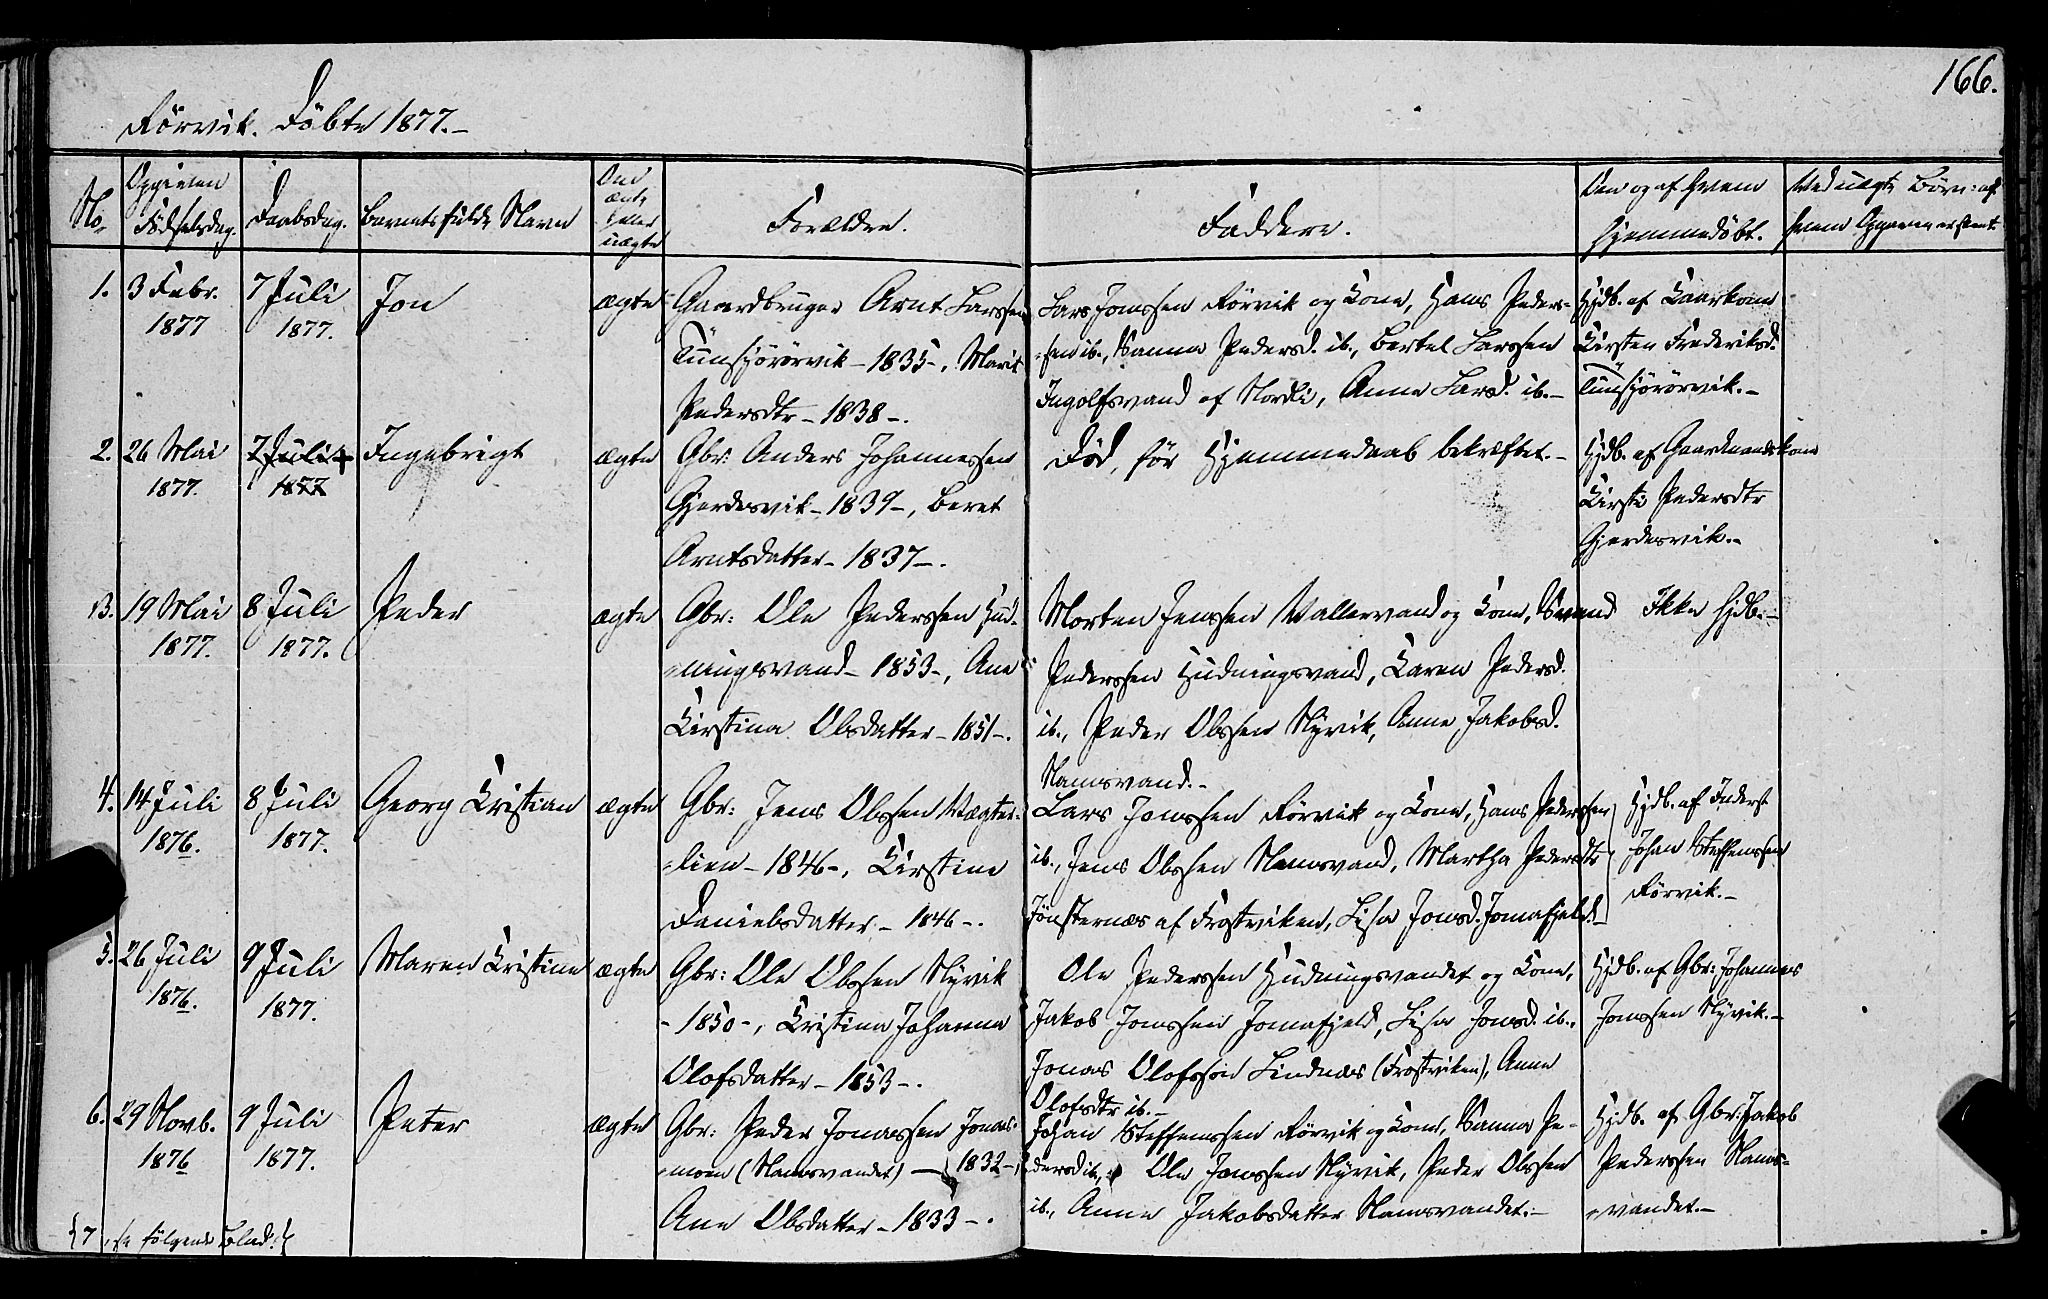 166.
Rörvik. Döbte 1877.-
No.
Opgiven
Födselsdag.
Daabsdag.
Barnets fulde Navn
Om
ægte
eller
uægte
Forældre.
Faddere.
Om og af hvem
hjemmedöbt.
Ved uægte Börn: af
hvem Opgaven er skeet.
1. 3 Febr.
1877
7 Juli
1877.
Jon
ægte
Gaardbruger Arnt Larssen
Tunsjörörvik - 1835 -, Marit
Pedersdtr - 1838 -.
Lars Jonssen Rörvik og Kone, Hans Peders-
sen ib., Sanna Pedersd. ib., Bertel Larssen
Ingolfsvand af Nordli, Anne Larsd. ib. -
Hjdb. af Kaarkone
Kirsten Frederiksd.
Tunsjörörvik. -
2. 26 Mai
1877.
7 Juli
1877
Ingebrigt
ægte
Gbr: Anders Johannessen
Gjerdesvik - 1839 -, Beret
Arntsdatter - 1837 -.
Död, för Hjemmedaab bekræftet. -
Hjdb. af Gaardmandskone
Kirsti Pedersdtr
Gjerdesvik. -
3. 19 Mai
1877.
8 Juli
1877.
Peder
ægte
Gbr: Ole Pederssen Hud-
ningsvand - 1853 -, Ane
Kirstina Olsdatter - 1851 -.
Morten Jenssen Vallervand og Kone, Svend
Pederssen Hudningsvand, Karen Pedersd.
ib., Peder Olssen Nyvik, Anne Jakobsd.
Namsvand. -
Ikke hjdb. -
4. 14 Juli
1876.
8 Juli
1877.
Georg Kristian
ægte
Gbr: Jens Olssen Vægter-
lien - 1846 -, Kirstine
Danielsdatter - 1846 -.
Lars Jonssen Rörvik og Kone, Hans Pederssen
ib., Jens Olssen Namsvand, Martha Pedersdtr
Jönsternæs af Frostviken, Lisa Jonsd. Jomafjeld. -
Hjdb. af Inderst
Johan Steffenssen
Rörvik. -
5. 26 Juli
1876.
9 Juli
1877.
Maren Kristine
ægte
Gbr: Ole Olssen Nyvik
- 1850 -, Kristina Johanna
Olofsdatter - 1853 -.
Ole Pederssen Hudningsvandet og Kone,
Jakob Jonssen Jomafjeld, Lisa Jonsd. ib.,
Jonas Olofsson Lindnæs (Frostviken), Anne
Olofsdtr ib. -
Hjdb. af Gbr: Johannes
Jonssen Nyvik. -
6. 29 Novb.
1876
9 Juli
1877.
Peter
ægte
Gbr: Peder Jonassen Jonas-
moen (Namsvandet) - 1832 -,
Ane Olsdatter - 1833 -.
Johan Steffenssen Rörvik og Kone, Sanna Pe-
dersd ib., Ole Jonssen Nyvik, Peder Olssen
ib., Anne Jakobsdatter Namsvandet. -
Hjdb. af Gbr: Jakob
Pederssen Nams-
vandet. -
{7, se fölgende Blad.}